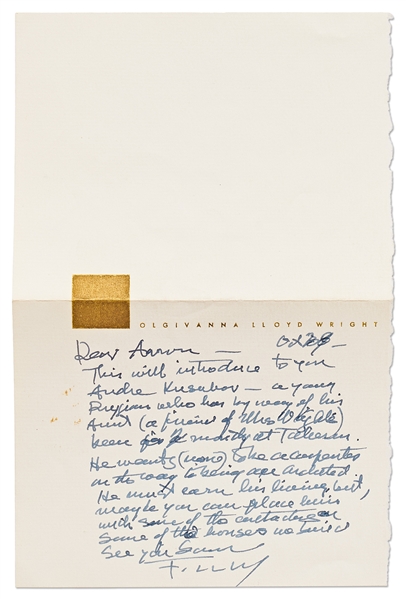 OLGIVANNA LLOYD WRIGHT
Dear Aaron — Oct 29 —
This will introduce to you
Andre Kusubov — a young
who has by way of his
Aunt (a friend of Mrs Wright)
been at Taliesin.
He wants (now) to be a carpenter
on the way to being an architect
He must earn his living but,
maybe you can place him
with some of the contractors on
some of the houses we build
See you soon
F.LL.W